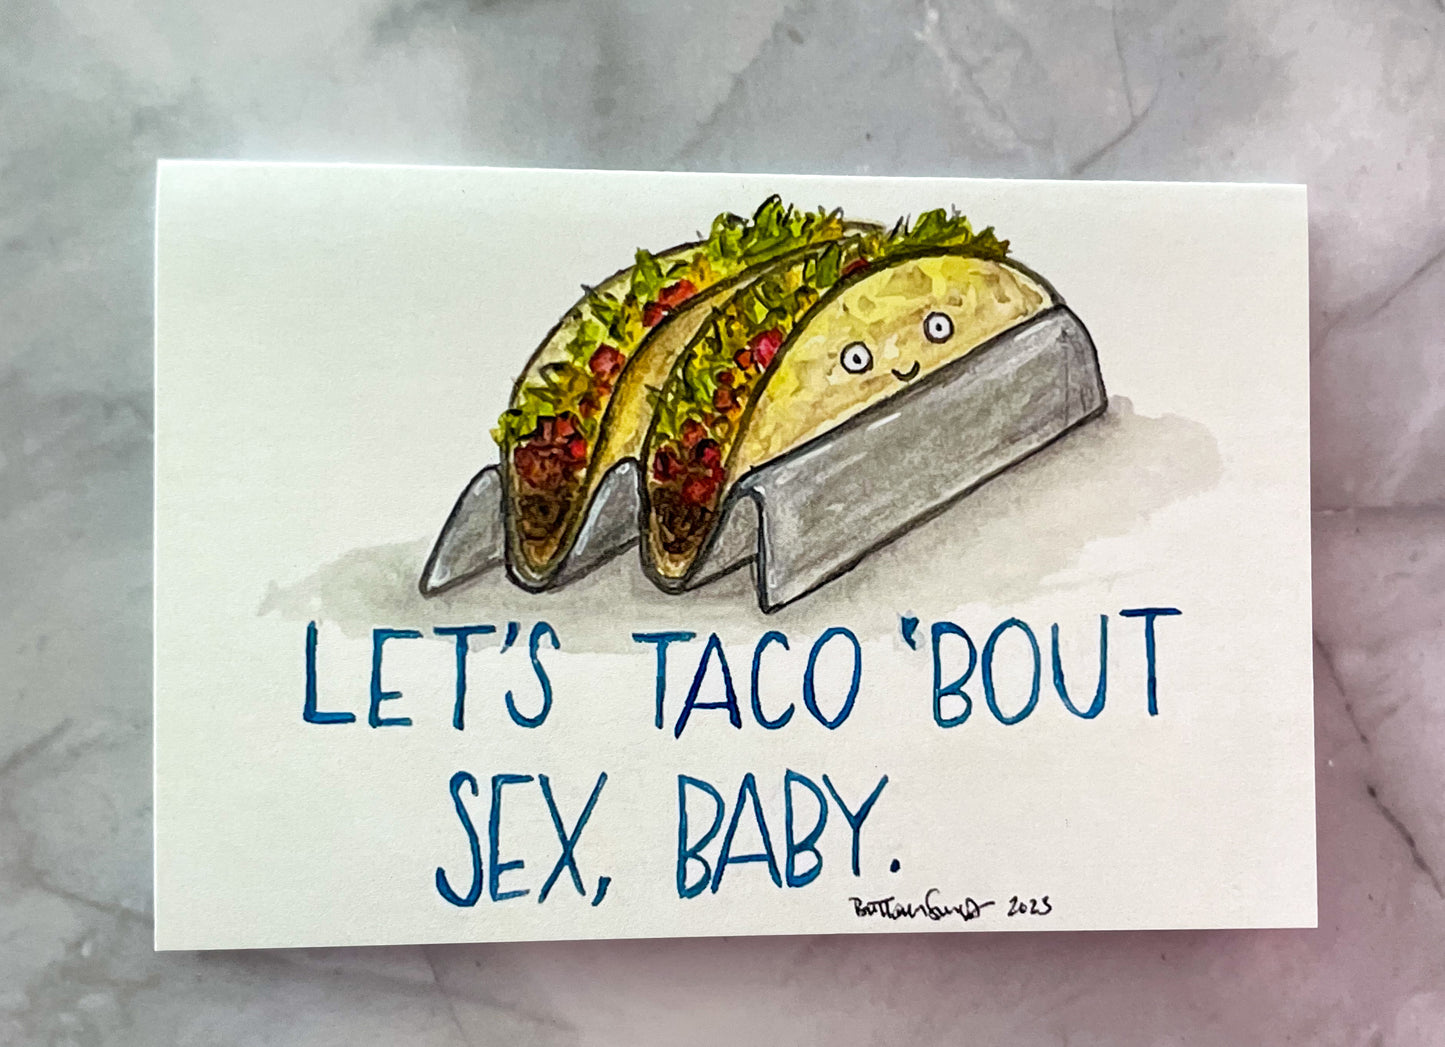 LET'S TACO 'BOUT
SEX, BABY.
2023